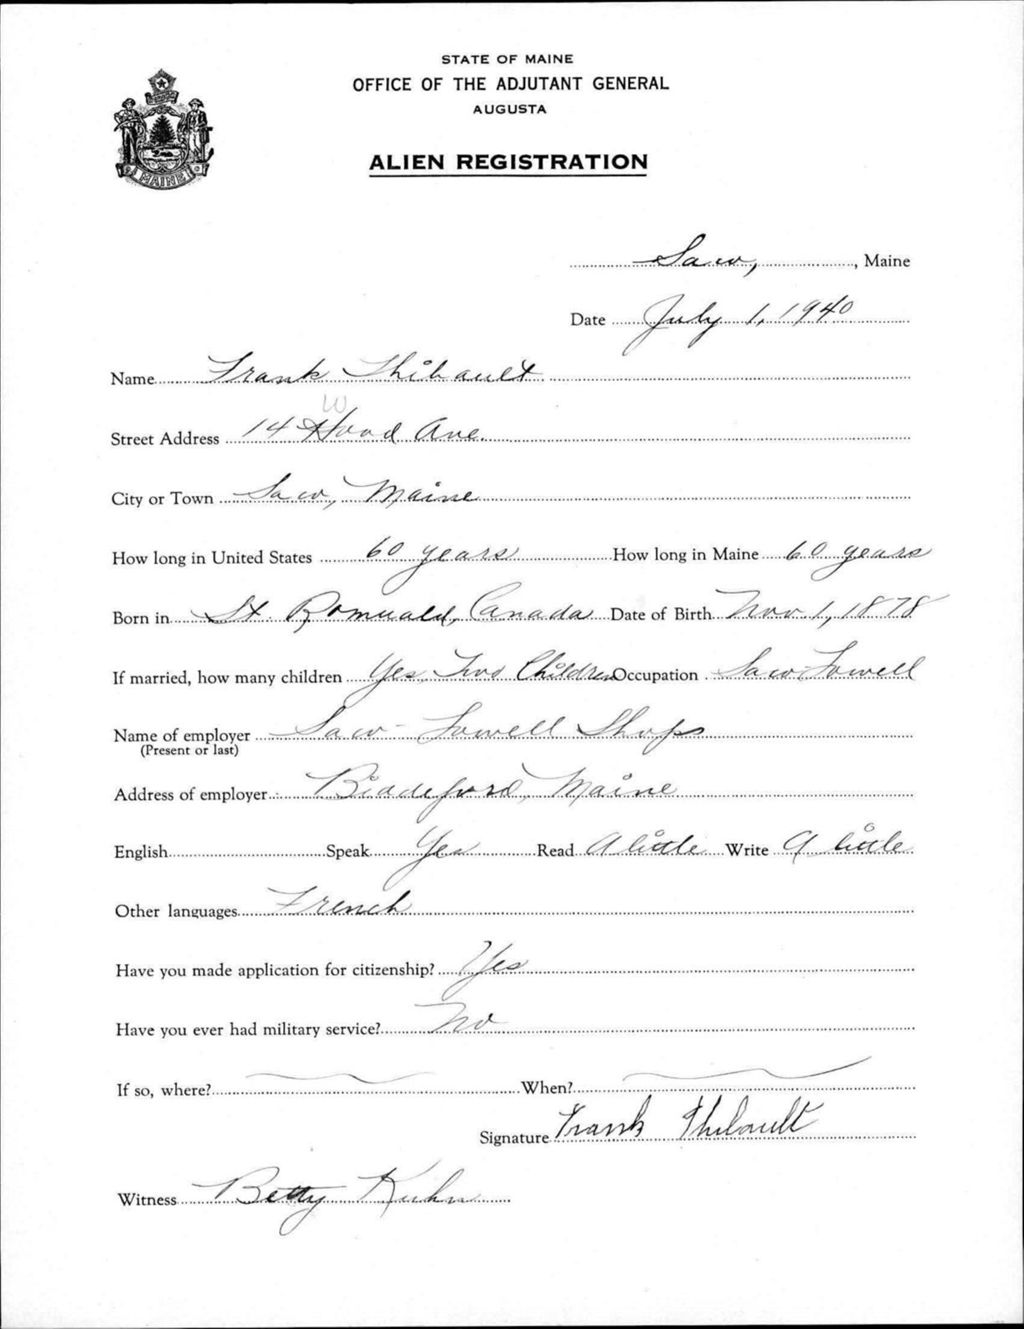 STATE OF MAINE
OFFICE OF THE ADJUTANT GENERAL
AUGUSTA
MAINE
ALIEN REGISTRATION
Saco, , Maine
Date July 1, 1940
Name Frank Thibault
W
Street Address 14 Hood Ave.
City or Town Saco, Maine
How long in United States 60 years How long in Maine 60 years
Born in St. Romuald, Canada Date of Birth Nov 1, 1878
If married, how many children Yes, Two Children Occupation Saco-Lowell
Name of employer Saco-Lowell Shops
(Present or last)
Address of employer Biddeford, Maine
English Speak Yes Read A little Write A little
Other languages French
Have you made application for citizenship? Yes
Have you ever had military service? No
If so, where? When?
Signature Frank Thibault
Witness Betty Kuhn